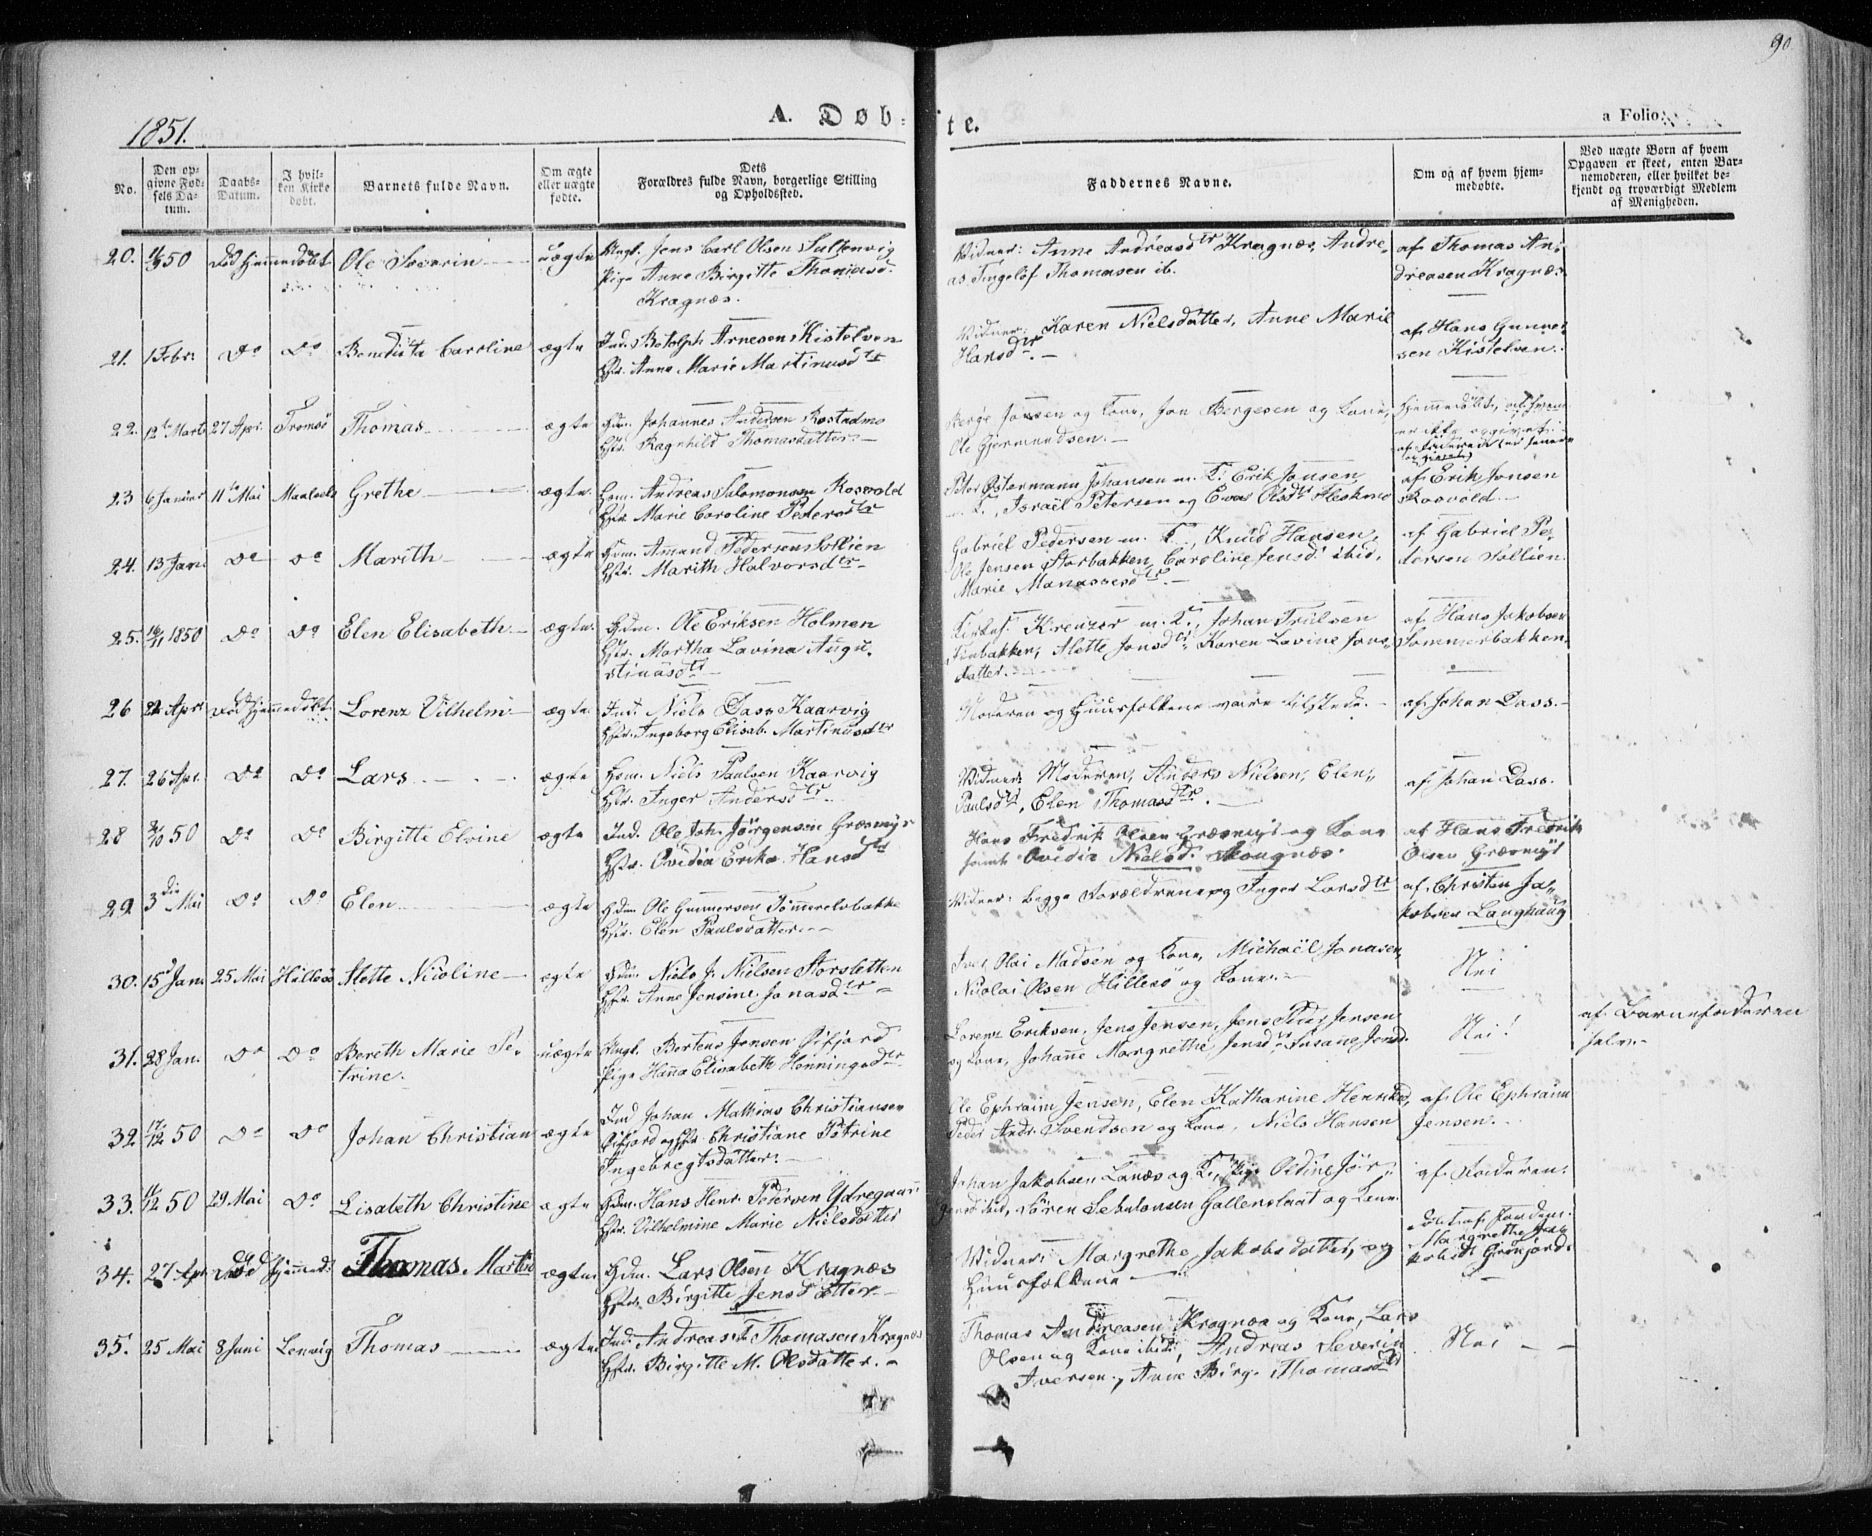 90
1851.
A. Døb-
te.
a Folio
No.
Den op-
givne Fød-
sels Da-
tum.
Daabs-
Datum.
I hvil-
ken Kirke
døbt.
Barnets fulde Navn.
Om ægte
eller uægte
fødte.
Dets
Forældres fulde Navn, borgerlige Stilling
og Opholdssted.
Faddernes Navne.
Om og af hvem hjem-
medøbte.
Ved uægte Børn af hvem
Opgaven er skeet, enten Bar-
nemoderen, eller hvilket be-
kjendt og troværdigt Medlem
af Menigheden.
20. 50 død hjemmedøbt Ole Severin uægte Ungk. Jens Carl Olsen
Pige Anne Birgitte Thomasd.
Kragnæs.
Vidner: Anne Andreasdtr Kragnæs, Andre-
as Fingelöf Thomasen ib.
af Thomas An-
dreasen Kragnæs
21. 1 Febr. Do Do Benedicta Caroline ægte Ind. Botolph Arnesen Kistelven
Hstr. Anne Marie Martinusdtr
Vidner: Karen Nielsdatter, Anne Marie
Hansdtr.
af Hans Gunner-
sen Kistelven.
22. 12te Marts 27 Apr. Tromsö Thomas ægte Gm. Johannes Andersen Rostadmo
Hstr. Ragnhild Thomasdatter
Berge Jonsen og Kone, Jon Bergesen og Kone,
Ole Gjermundsen.
Hjemmedöbt,
er ikke opgivet
23 6 Januar 11te Mai Maalselv Grethe ægte Hsm. Andreas Salomonsen Rosvold
Hstr. Marie Caroline Pedersdtr
Peter Ostermann Johansen m. K. Erik Jonsen
K., Israel Petersen og Eva Olsdtr Fleskmo
af Erik Jonsen
Rosvold.
24. 13 Jan. Do Do Marith ægte Hsm. Amund Pedersen Sollien
Hstr. Marith Halvorsdtr
Gabriel Pedersen m. K., Knud Hansen,
Ole Jensen Storbakken, Caroline Jensd. ibid.
Marie Manassesdtr.
af Gabriel Pe-
dersen Sollien
25. 1850 Do Do Elen Elisabeth ægte Gdm. Ole Eriksen Holmen
Hstr. Martha Lavina Augu-
stinusdtr
Kreuzer m. K., Johan Trulsen
Alette Jonsdtr, Karen Lavine Jons-
datter.
af Hans Jakobsen
Sommerbakken
26 Apr. død hjemmedøbt Lorenz Vilhelm ægte Ind. Niels Dass Kaarvig
Hstr. Ingeborg Elisab. Martinusdtr
Moderen og Huusfolkene vare tilstede.
af Johan Dass.
27. 26 Apr. Do Do Lars ægte Hsm. Niels Paulsen Kaarvig
Hstr. Inger Andersdtr
Vidner: Moderen, Anders Nielsen, Elen
Paulsdtr, Elen Thomasdtr.
af Johan Dass.
28 50 Do Do Birgitte Elvine ægte Ind. Ole Joh. Jørgensen Græsmyr
Hstr. Ovidia Erika Hansdtr
Hans Fredrik Olsen Græsmyr og Kone
samt Ovidia Nielsd. Skougnæs
af Hans Fredrik
Olsen Græsmyr
29 3die Mai Do Do Elen ægte Gdm. Ole Gunnersen Tömmerelvbakke
Hstr. Elen Paulsdatter
Vidner: begge Forældrene og Inger Larsdtr
af Christen Ja-
kobsen Langhaug
30. 15 Jan. 25 Mai Hillesö Alette Nicoline ægte Gdm. Niels J. Nielsen Storsletten
Hstr. Anne Jensine Jonasdtr
Iver Olai Madsen og Kone, Michaël Jonasen
Nicolai Olsen Hillesö og Kone.
Nei
31. 28 Jan. Do Do Bereth Marie Pe-
trine.
uægte Ungk. Bertens Jensen Gifjord
Pige Hanna Elisabeth Henningsdtr
Lorenz Eriksen, Jens Jensen, Jens Jensen
og Kone, Johanne Margrethe Jensd., Susane Jensd.
Nei!
af Barnefaderen
selv.
32 17/12 50 Do Do Johan Christian ægte Ind. Johan Mathias Christiansen
Gifjord og Hstr. Christiane Petrine
Ingebregtsdatter.
Ole Ephraim Jensen, Elen Katharine Henriksd,
Peder Andr. Svendsen og Kone, Niels Hansen
af Ole Ephraim
Jensen.
33. 50 29 Mai Do Lisabeth Christine ægte Gdm. Hans Henr. Pedersen Ydregaard
Hstr. Vilhelmine Marie Nielsdatter
Johan Jakobsen Lanæs og K., Pige Oldine Jör-
gensd ibid, Sören Sebulonsen Gallenslaat og Kone
af Faderen.
34. 27 Apr. død Hjemmed. Thomas Martin ægte Gdm. Lars Olsen Kragnæs
Hstr. Birgitte Jensdatter
Vidner: Margrethe Jakobsdatter, og
Huusfolkene
Margrethe Ja-
kobsdt. Grönjord.
35. 25 Mai 8 Juni Lenvig Thomas ægte Ind. Andreas F. Thomasen Kragnæs
Hstr. Birgitte M. Olsdatter.
Thomas Andreasen Kragnæs og Kone, Lars
Olsen og Kone ibid, Andreas Severin
Iversen, Anne Birg. Thomasdtr
Nei